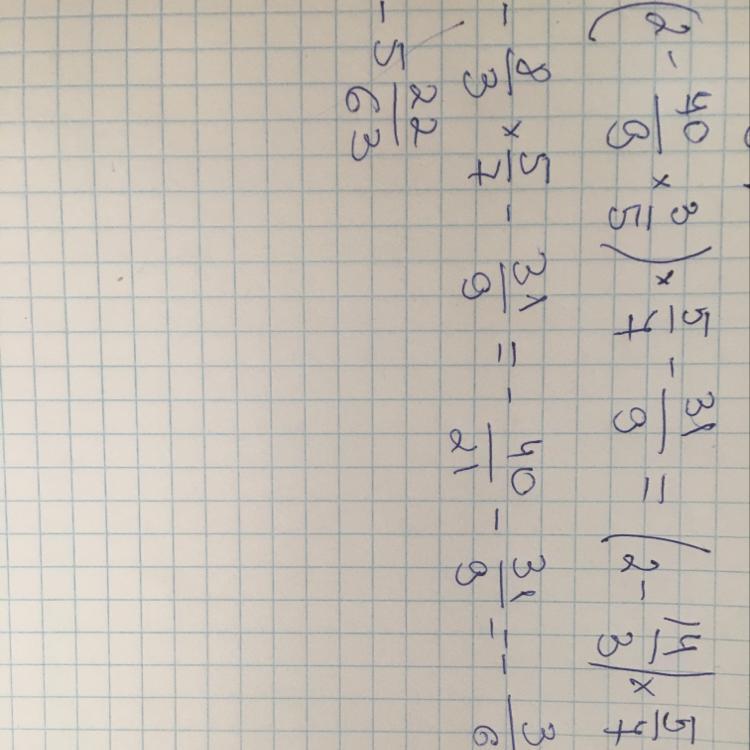 (2 - 40/9 × 3/5) × 5/7 - 31/9 = (2 - 14/3) × 5/7
- 8/3 × 5/7 - 31/9 = - 40/21 - 31/9 = - 3/6
- 5 22/63